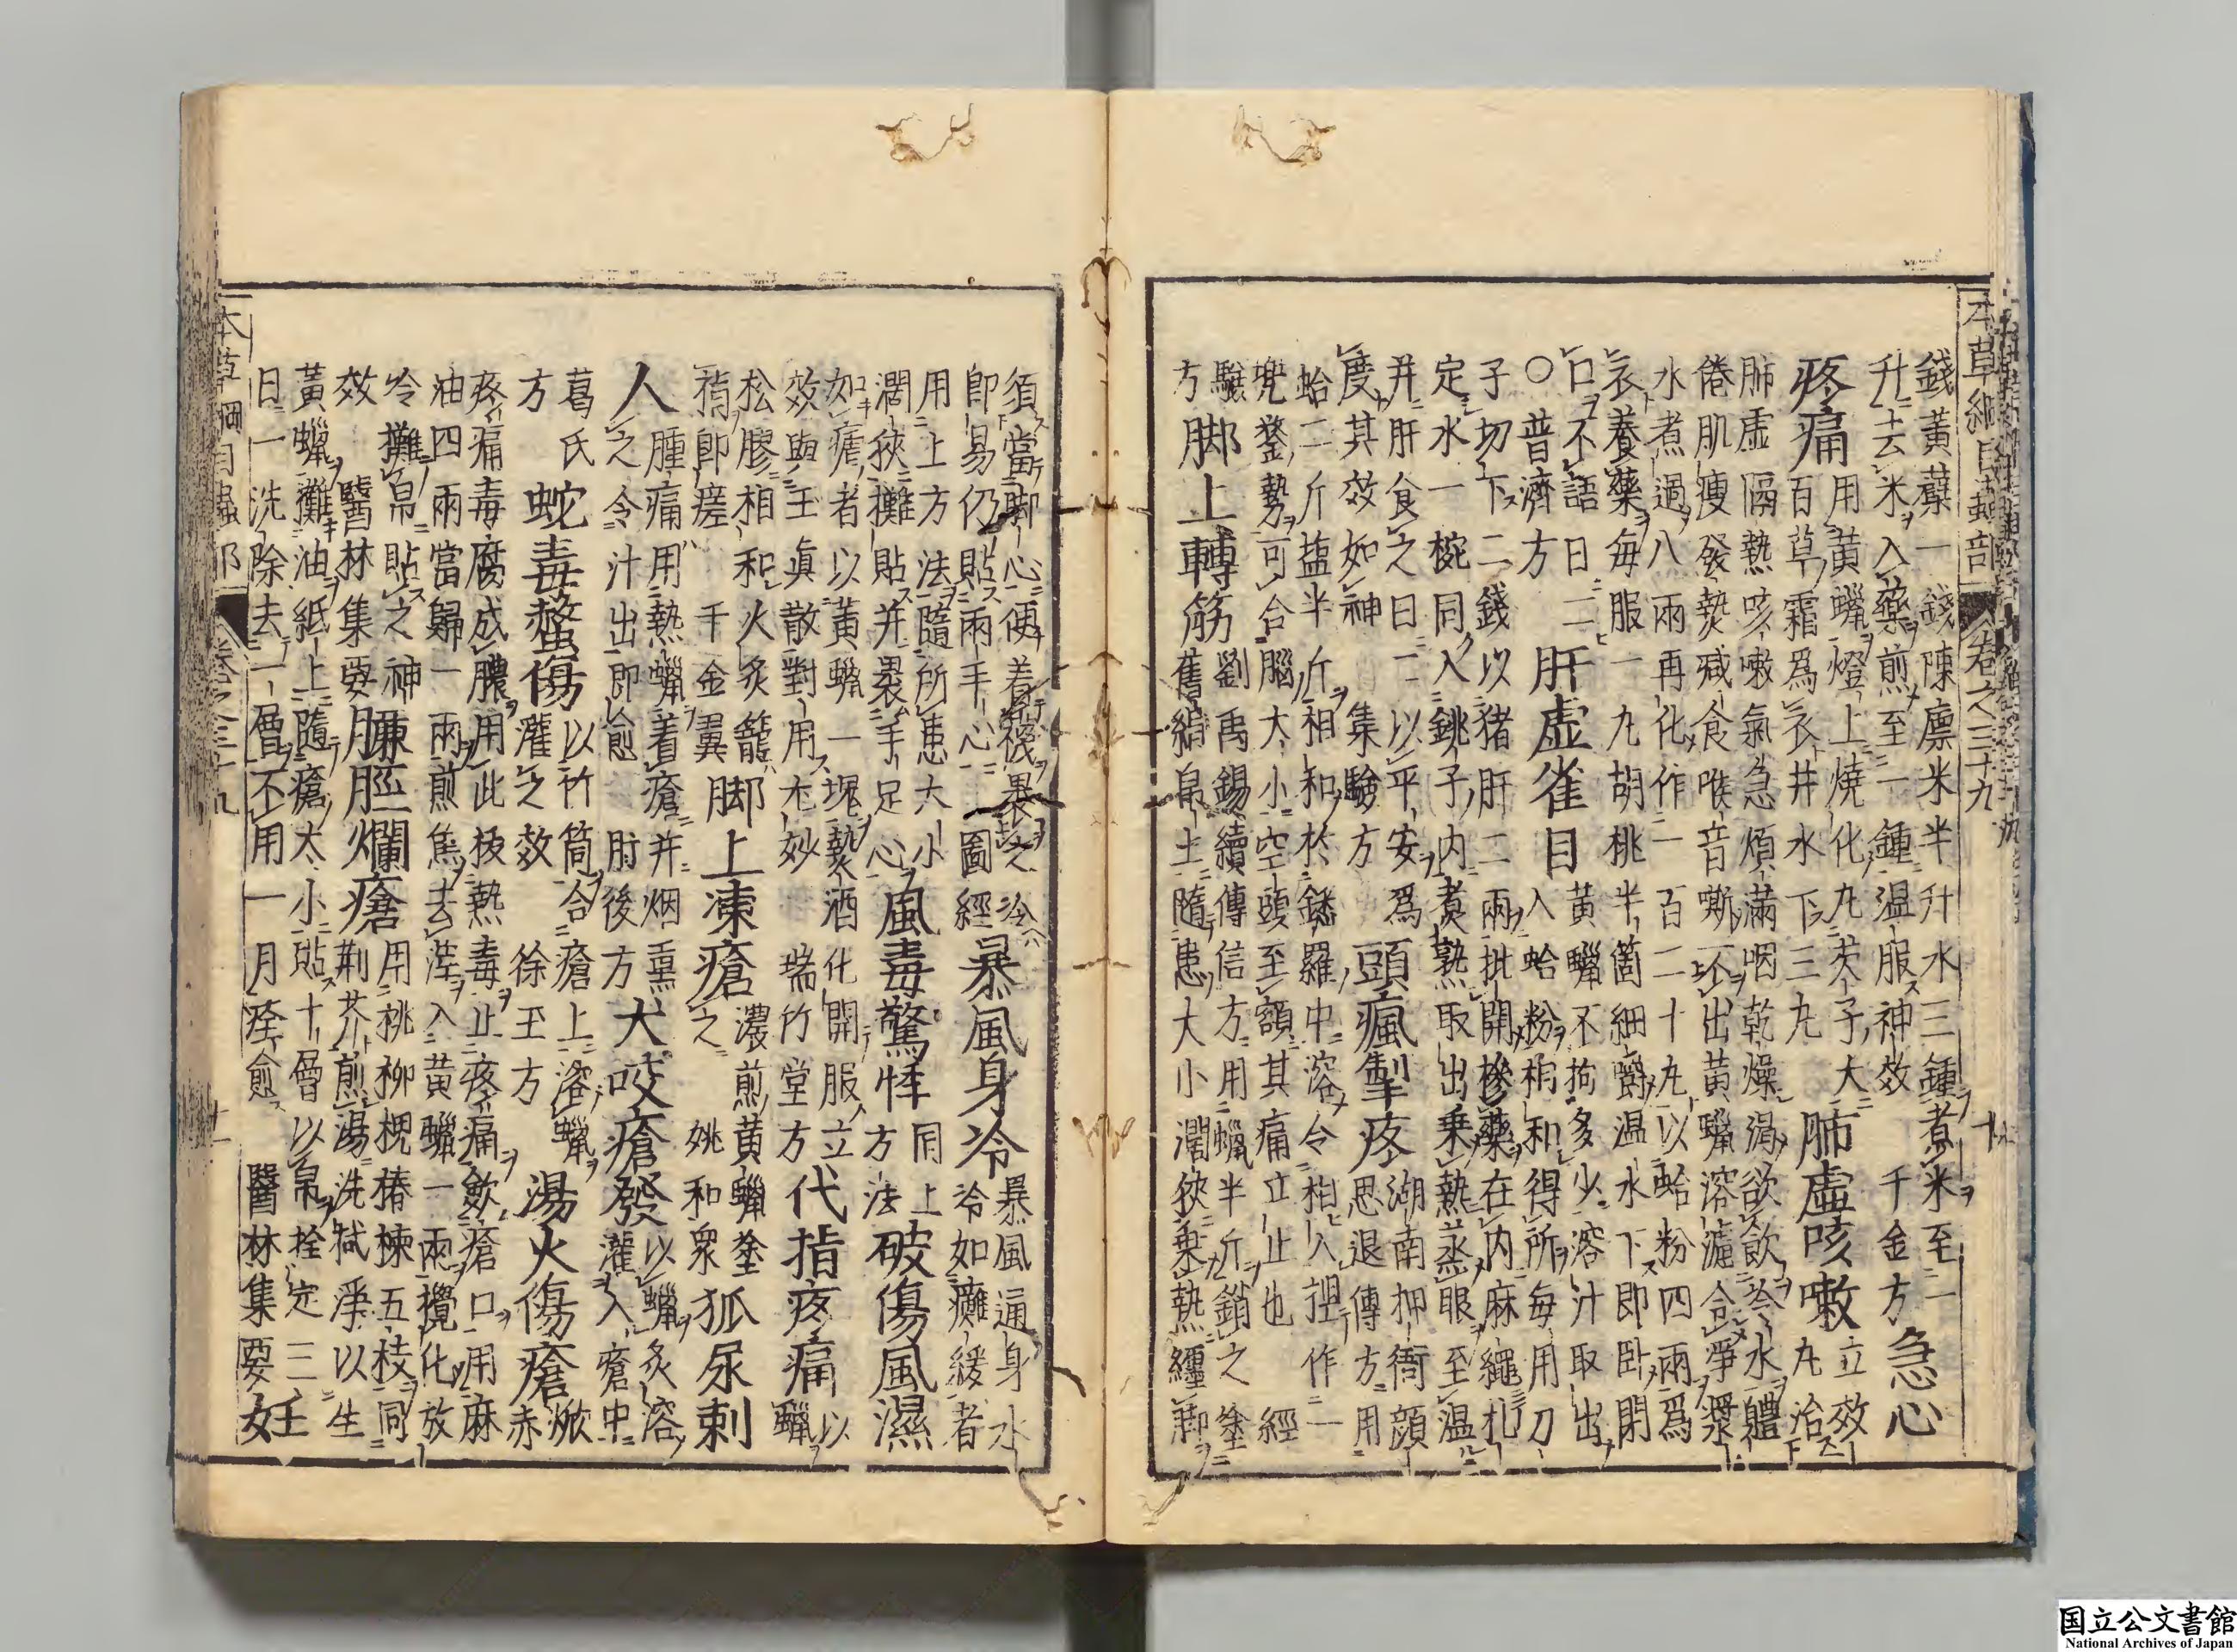 本草綱目蟲部 卷之三十九 十
錢黃蘗一錢陳廩米半升水三鍾煮米至一
升去米入藥煎至一鍾溫服神效 千金方 急心
疼痛 用黃蠟燈上燒化丸芡子大
百草霜爲衣井水下三丸 肺虛咳嗽 立效
丸治
肺虛膈熱咳嗽氣急煩滿咽乾燥渴欲飲冷水體
倦肌瘦發熱減食喉音嘶不出黃蠟溶濾令淨漿
水煮過八兩再化作一百二十丸以蛤粉四兩爲
衣養藥每服一丸胡桃半箇細嚼溫水下即臥閉
口不語日二
○普濟方 肝虛雀目 黃蠟不拘多少溶汁取出
入蛤粉相和得所每用刀
子切下二錢以猪肝二兩批開摻藥在内麻繩扎
定水一椀同入銚子内煮熟取出乘熱蒸眼至溫
并肝食之日二以平安爲
度其效如神 集驗方 頭瘋掣疼 湖南押衙顔
思退傳方用
蛤二斤塩半斤相和於鐩羅中溶令相入捏作一
兜鍪勢可合腦大小空頭至額其痛立止也 經
驗
方 脚上轉筋 劉禹錫續傳信方用蠟半斤銷之塗
舊絹帛上隨患大小濶狹乗熱纏脚
須當脚心便着襪裹之冷
即易仍貼兩手心 圖經 暴風身冷 暴風通身水
冷如癱緩者
用上方法隨所患大小
濶狹攤貼并裹手足心 風毒驚悸 同上
方法 破傷風濕
如瘧者以黃蠟一塊熱酒化開服立
效與玉眞散對用尤妙 瑞竹堂方 代指疼痛 以
蠟
松膠相和火炙籠
指即瘥 千金翼 脚上凍瘡 濃煎黃蠟塗
之 姚和衆 狐尿刺
人 腫痛用熱蠟着瘡并烟熏
之令汁出即愈 肘後方 犬咬瘡發 以蠟炙溶
灌入瘡中
葛氏
方 蛇毒螫傷 以竹筒合瘡上溶蠟
灌之效 徐王方 湯火傷瘡 焮
赤
疼痛毒腐成膿用此拔熱毒止疼痛斂瘡口用麻
油四兩當歸一兩煎焦去滓入黃蠟一兩攪化放
冷攤帛貼之神
效 醫林集要 臁脛爛瘡 用桃柳槐椿楝五枝同
荆芥煎湯洗拭淨以生
黃蠟攤油紙上隨瘡大小貼十層以帛拴定三
日一洗除去一層不用一月痊愈 醫林集要 妊
本草綱目蟲部 卷之三十九 十一
国立公文書館
National Archives of Japan